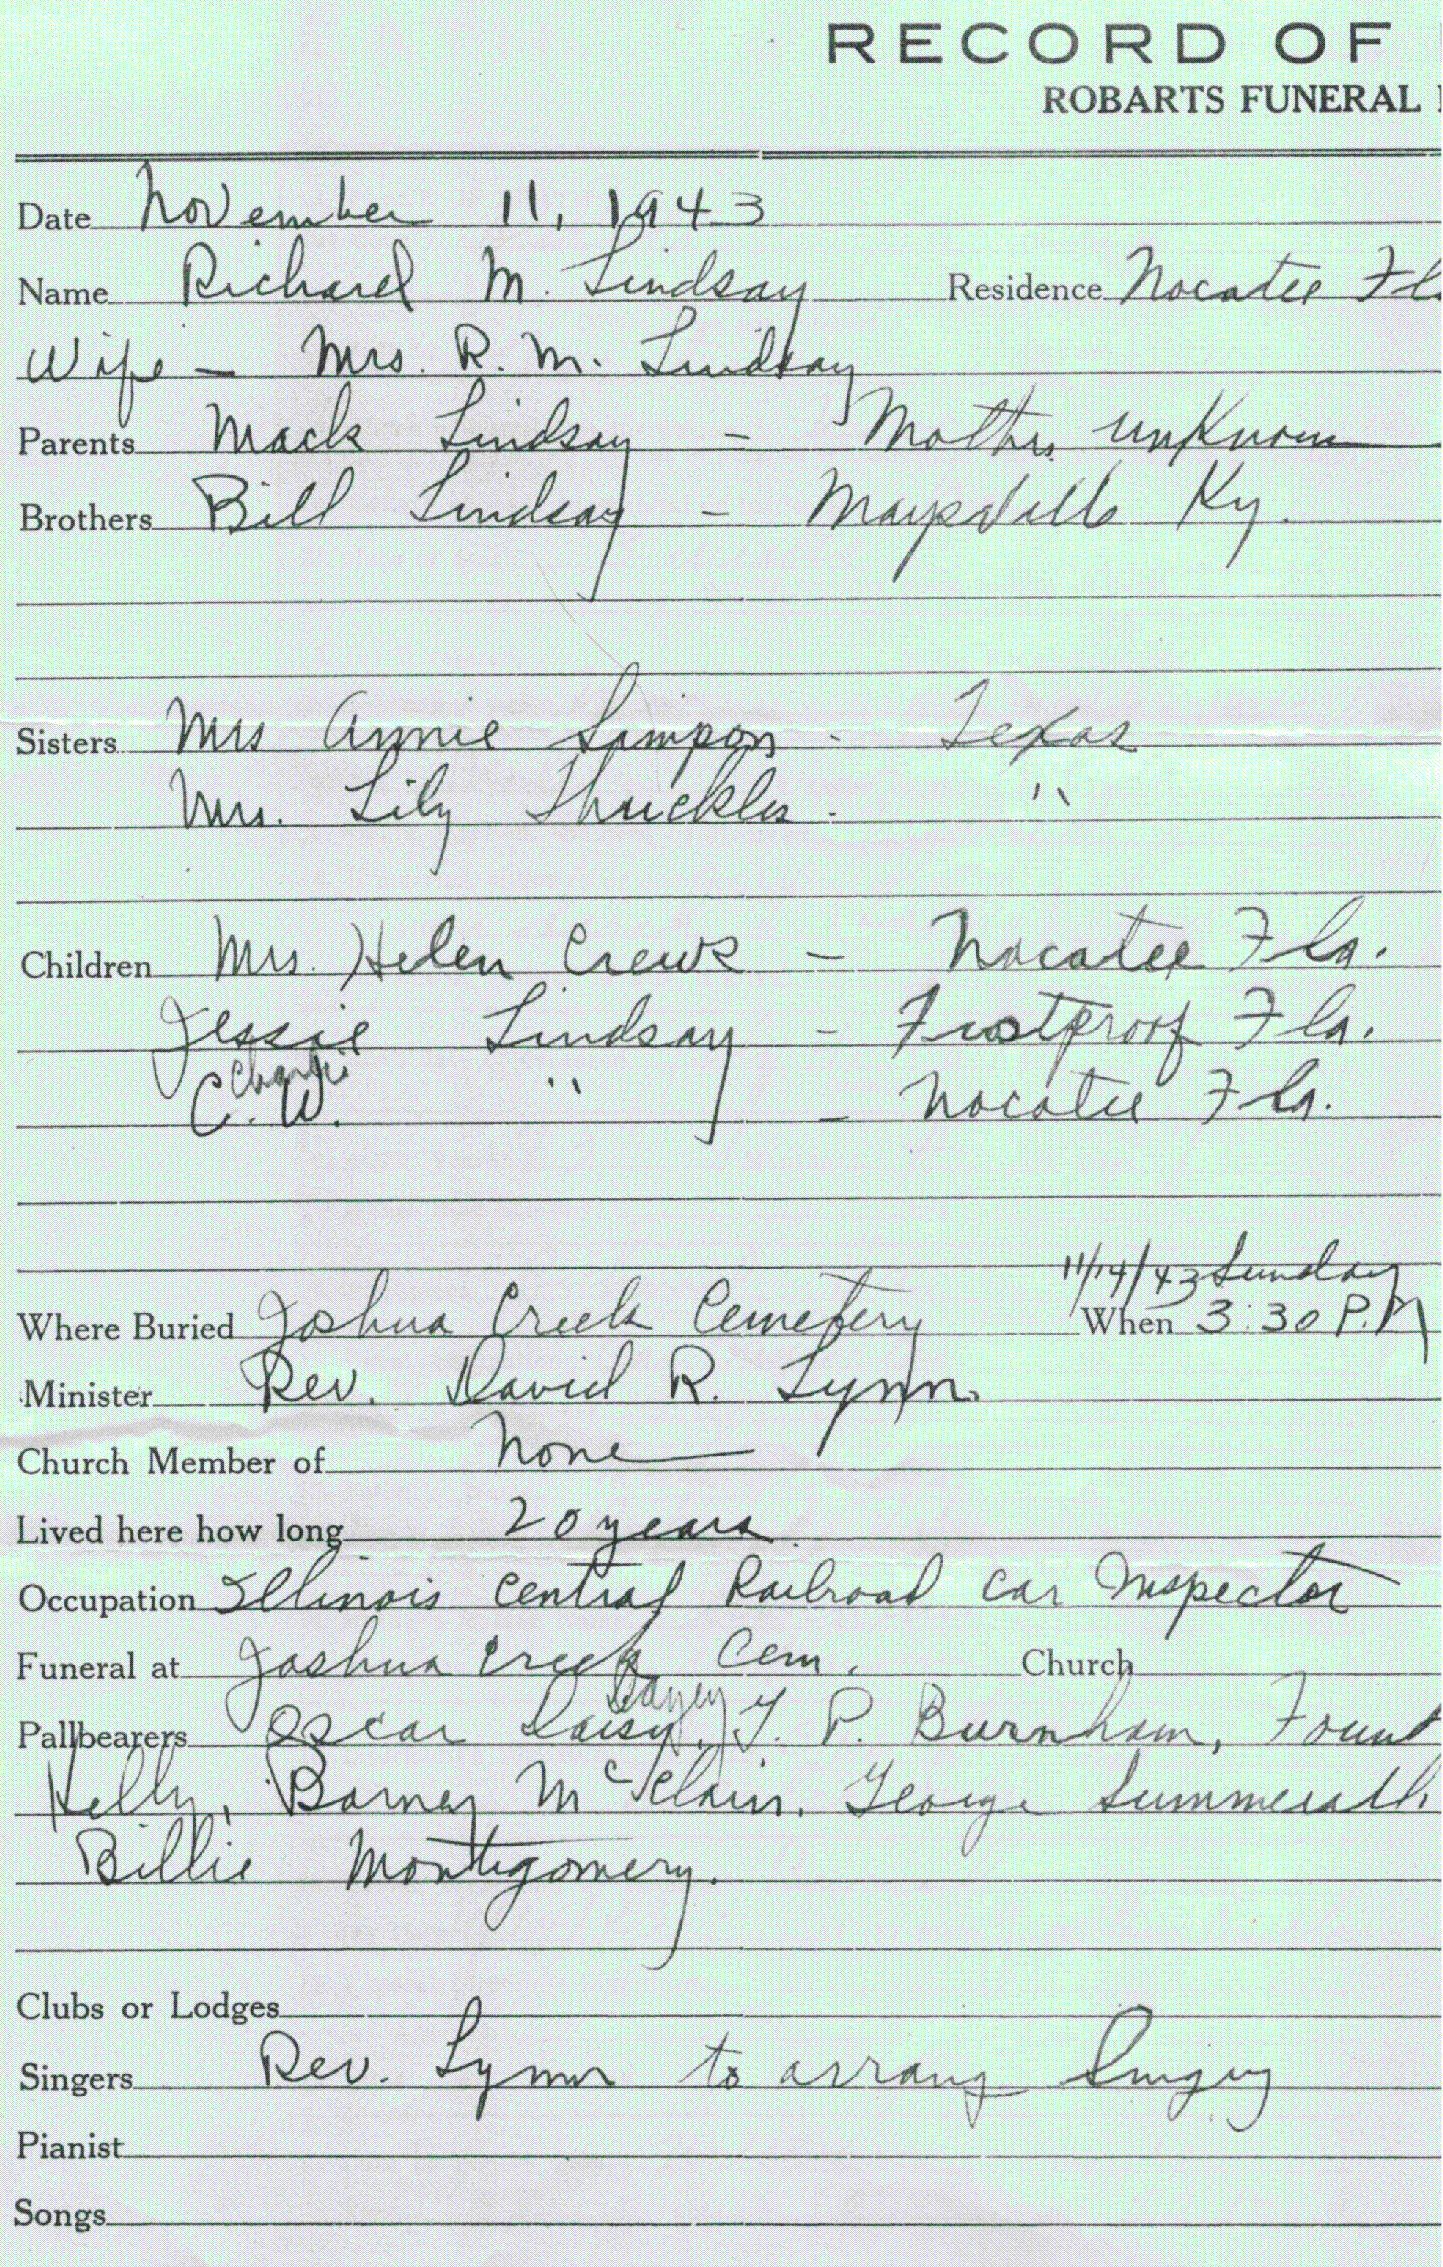 RECORD OF
ROBARTS FUNERAL
Date November 11, 1943
Name Richard M. Lindsay Residence Nocatee Fla
Wife - Mrs. R. M. Lindsay
Parents Mack Lindsay - Mother unknown
Brothers Bill Lindsay - Maysville Ky.
Sisters Mrs Annie Simpson - Texas
Mrs. Lily - "
Children Mrs. Helen Crews - Nocatee Fla.
Jessie Lindsay - Frostproof Fla.
Charlie
C. W. " - Nocatee Fla.
11/14/43 Sunday
Where Buried Joshua Creek Cemetery When 3:30 P.M
Minister Rev. David R. Lynn.
Church Member of None
Lived here how long 20 years
Occupation Illinois Central Railroad Car Inspector
Funeral at Joshua Creek Cem. Church
Pallbearers Oscar Daisy, T. P. Burnham, Fount
Kelly, Barney McClain, George
Billie Montgomery.
Clubs or Lodges
Singers Rev. Lynn to arrang Singing
Pianist
Songs